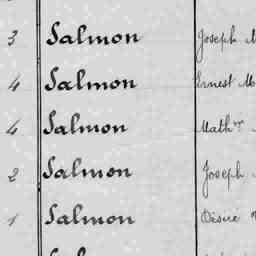 3 Salmon Joseph M
4 Salmon Ernest M
4 Salmon Mathr
2 Salmon Joseph
1 Salmon Désiré